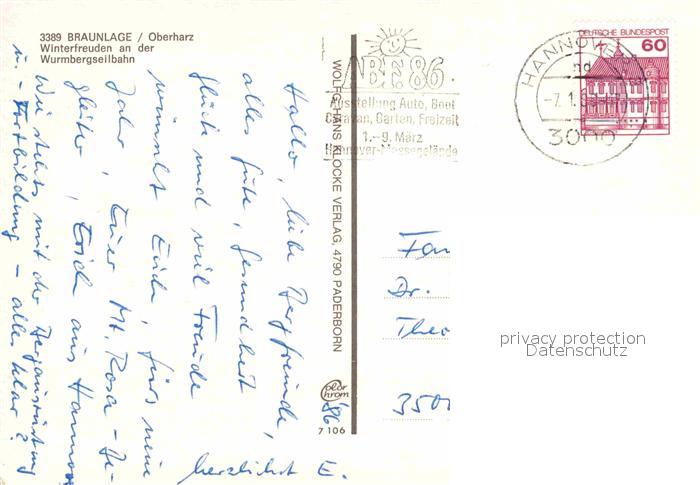 3389 BRAUNLAGE / Oberharz
Winterfreuden an der
Wurmbergseilbahn
Hallo, liebe Bergfreunde,
alles Gute, Gesundheit
Glück und viel Freude
wünscht Euch, fürs neue
Jahr, Euer Mt. Rosa - Be-
gleiter, Erich aus Hannov
Wie stehts mit der Bergausrüstung
u. - Fortbildung - alles klar?
herzlichst E.
'86
WOLFG. HANS KLOCKE VERLAG, 4790 PADERBORN
Color
Chrom
7 106
ABF 86
Ausstellung Auto, Boot
Caravan, Garten, Freizeit
1.-9. März
Hannover-Messegelände
HANNOVER
3000
DEUTSCHE BUNDESPOST
60
Fam
Dr.
Theo
350
privacy protection
Datenschutz